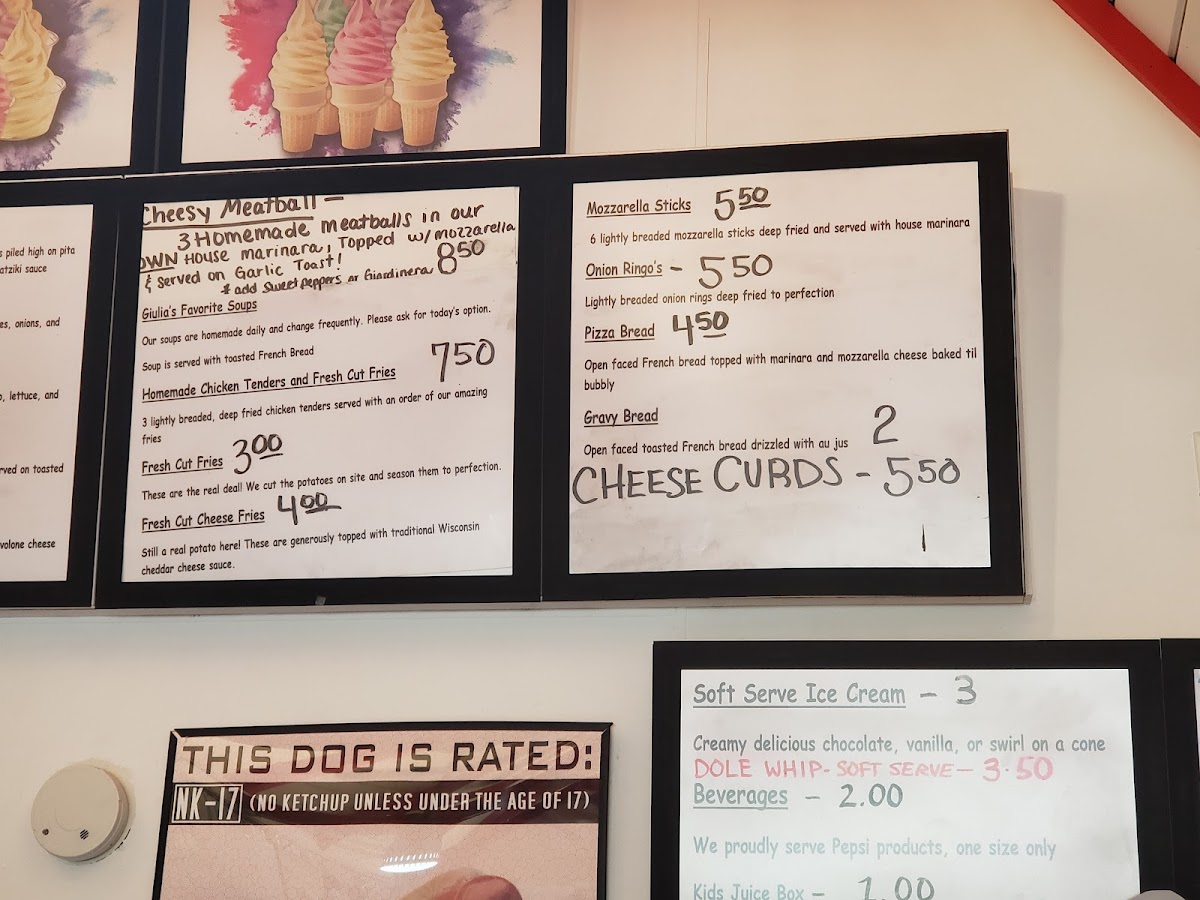 s piled high on pita
atziki sauce
es, onions, and
o, lettuce, and
rved on toasted
volone cheese
Cheesy Meatball —
3 Homemade meatballs in our
OWN House marinara, Topped w/ mozzarella
& served on Garlic Toast!
* add sweet peppers or Giardinera 8 50
Giulia's Favorite Soups
Our soups are homemade daily and change frequently. Please ask for today's option.
Soup is served with toasted French Bread
Homemade Chicken Tenders and Fresh Cut Fries 750
3 lightly breaded, deep fried chicken tenders served with an order of our amazing
fries
Fresh Cut Fries 3 00
These are the real deal! We cut the potatoes on site and season them to perfection.
Fresh Cut Cheese Fries 4 00
Still a real potato here! These are generously topped with traditional Wisconsin
cheddar cheese sauce.
Mozzarella Sticks 5 50
6 lightly breaded mozzarella sticks deep fried and served with house marinara
Onion Ringo's - 5 50
Lightly breaded onion rings deep fried to perfection
Pizza Bread 4 50
Open faced French bread topped with marinara and mozzarella cheese baked til
bubbly
Gravy Bread 2
Open faced toasted French bread drizzled with au jus
CHEESE CURDS - 550
Soft Serve Ice Cream - 3
Creamy delicious chocolate, vanilla, or swirl on a cone
DOLE WHIP- SOFT SERVE - 3.50
Beverages - 2.00
We proudly serve Pepsi products, one size only
Kids Juice Box - 1.00
THIS DOG IS RATED:
NK-17 (NO KETCHUP UNLESS UNDER THE AGE OF 17)